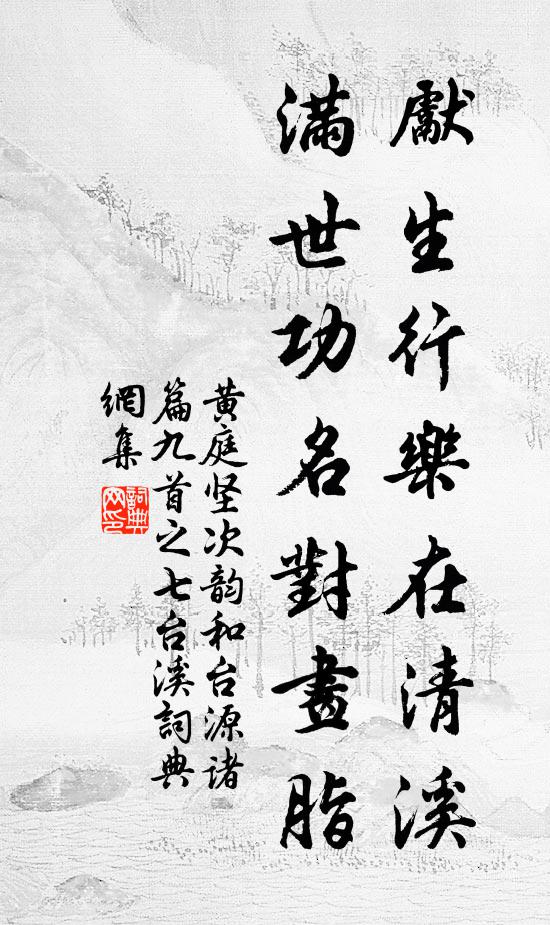 獻生行樂在清溪
滿世功名對畫脂
黄庭坚次韵和台源诸
篇九首之七台溪詞典
網集
詞典
网印